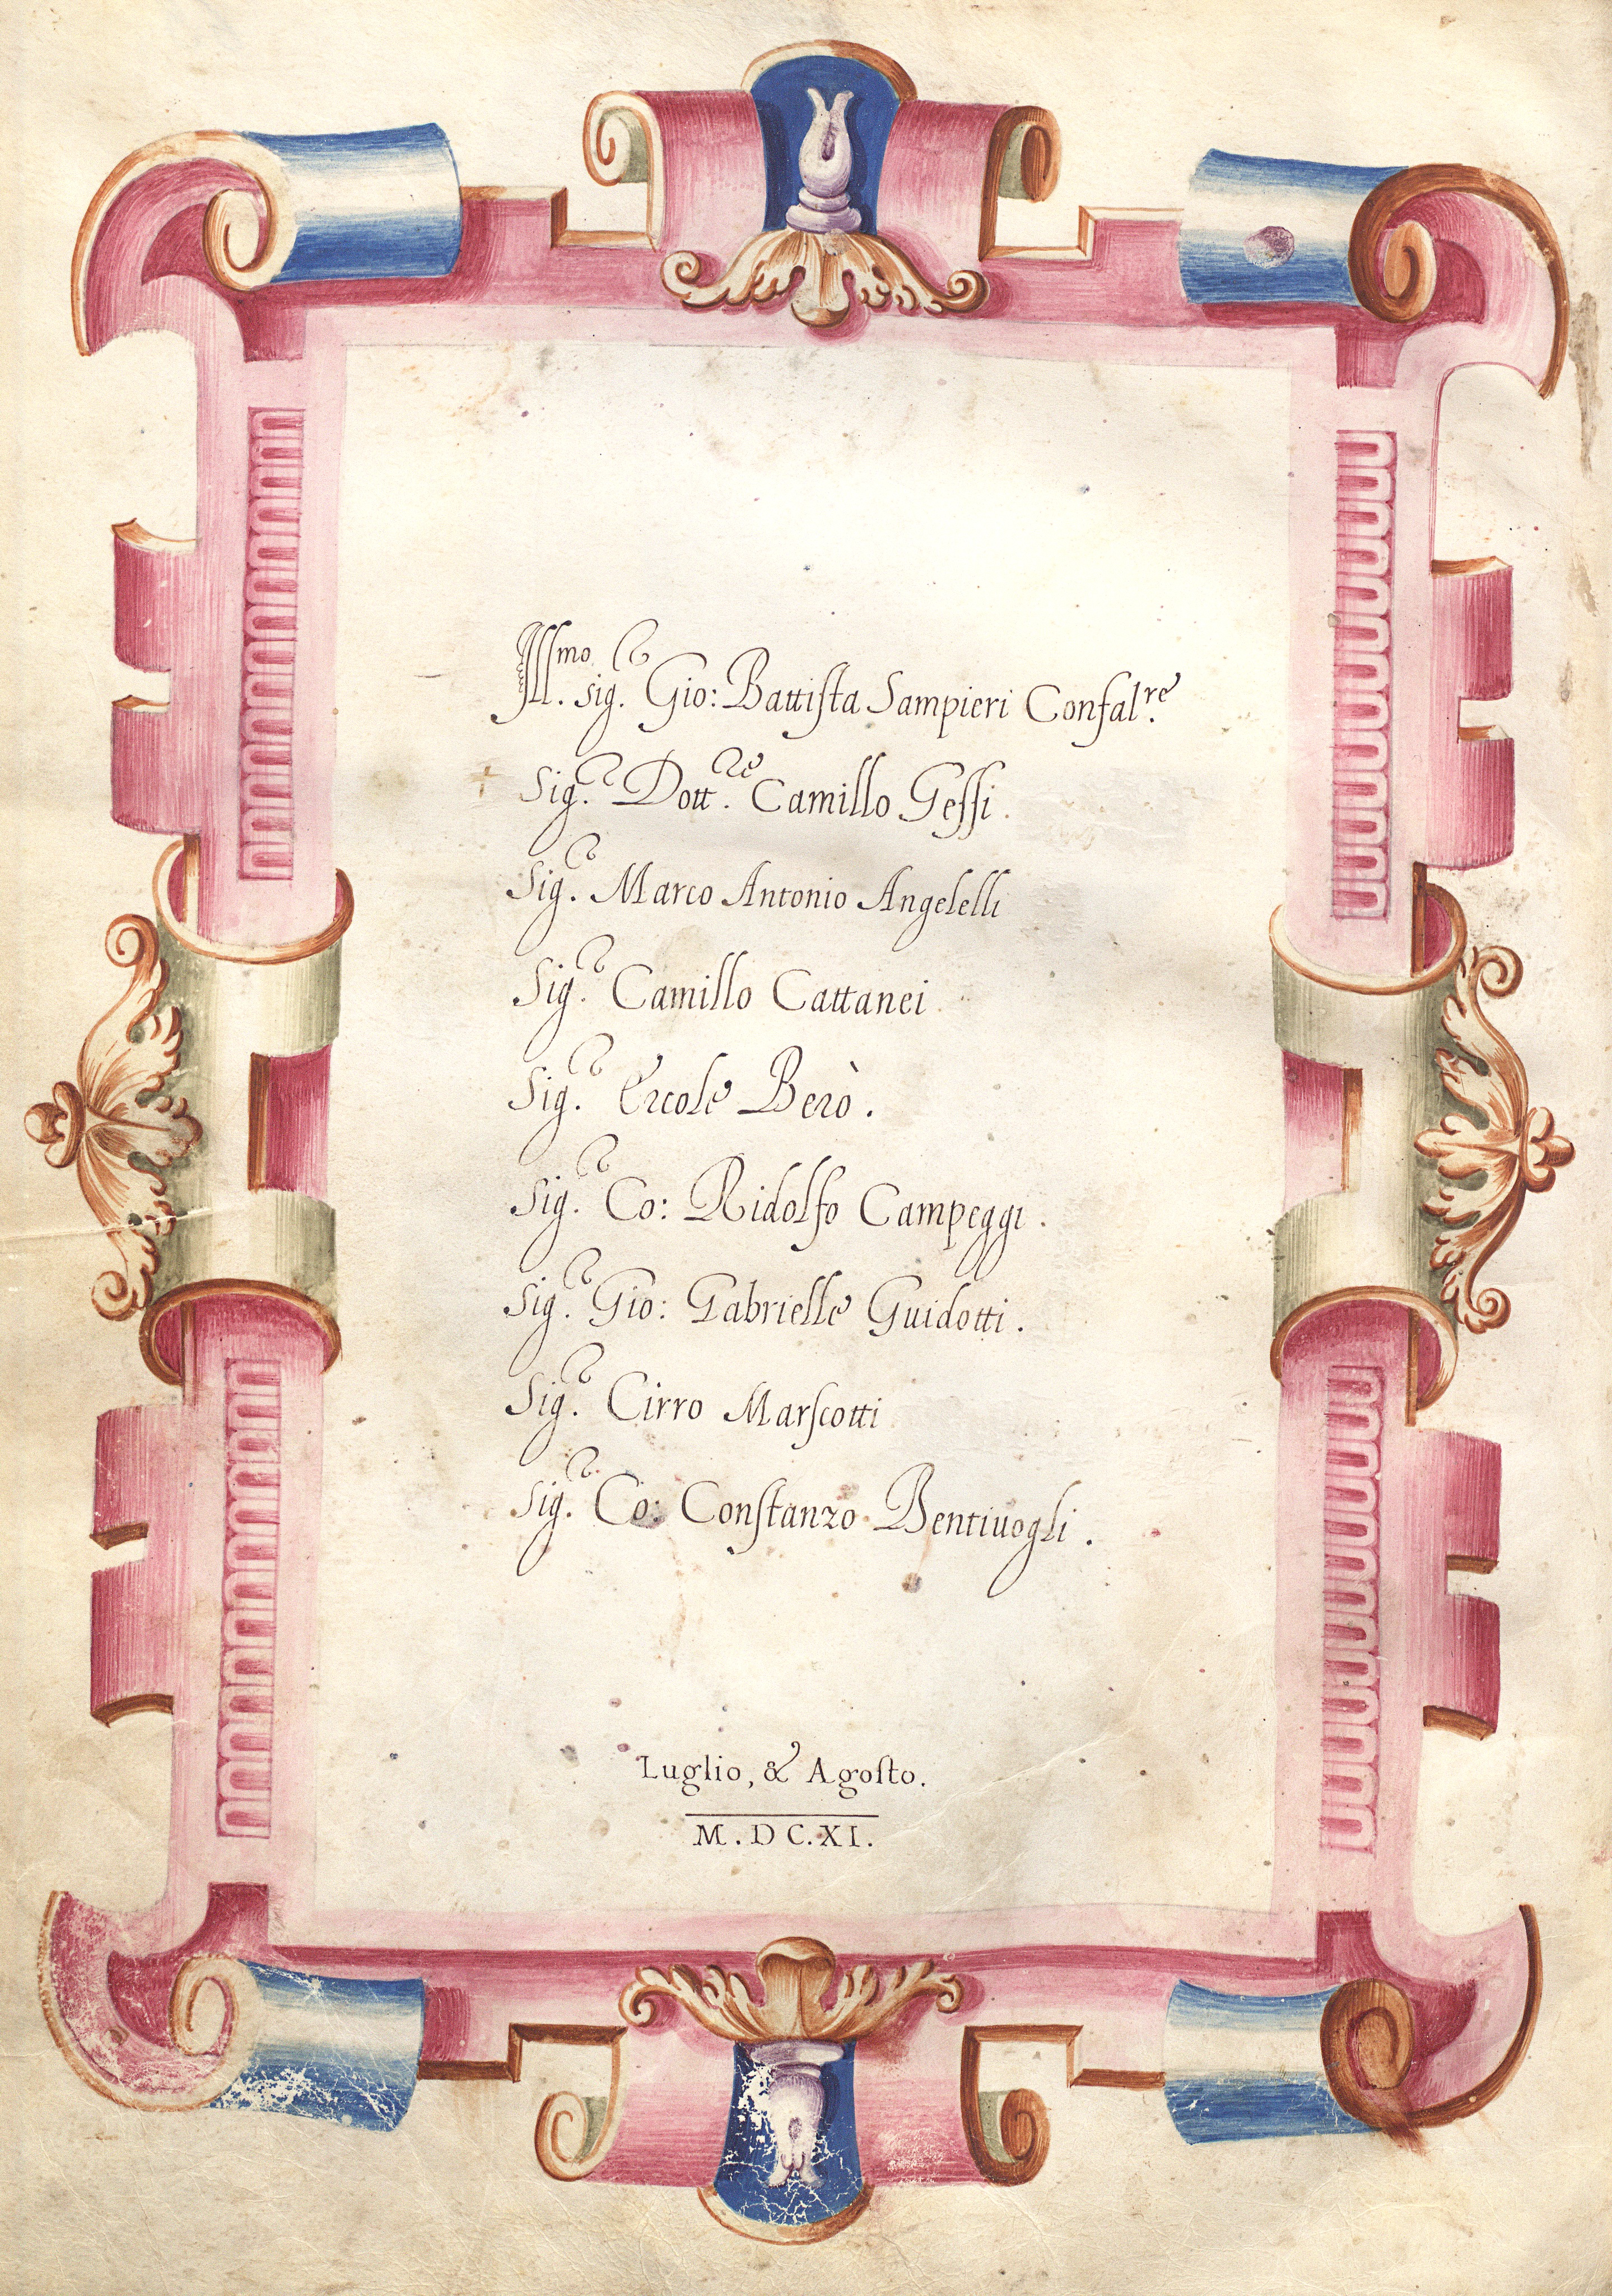 Ill.mo sig.r Gio: Battista Sampieri Confal.re
Sig.r Dott.re Camillo Gessi.
Sig.r Marco Antonio Angelelli
Sig.r Camillo Cattanei
Sig.r Ercole Berò.
Sig.r Co: Ridolfo Campeggi.
Sig.r Gio: Gabrielle Guidotti.
Sig.r Cirro Marscotti
Sig.r Co: Constanzo Bentiuogli.
Luglio, & Agosto.
M.DC.XI.